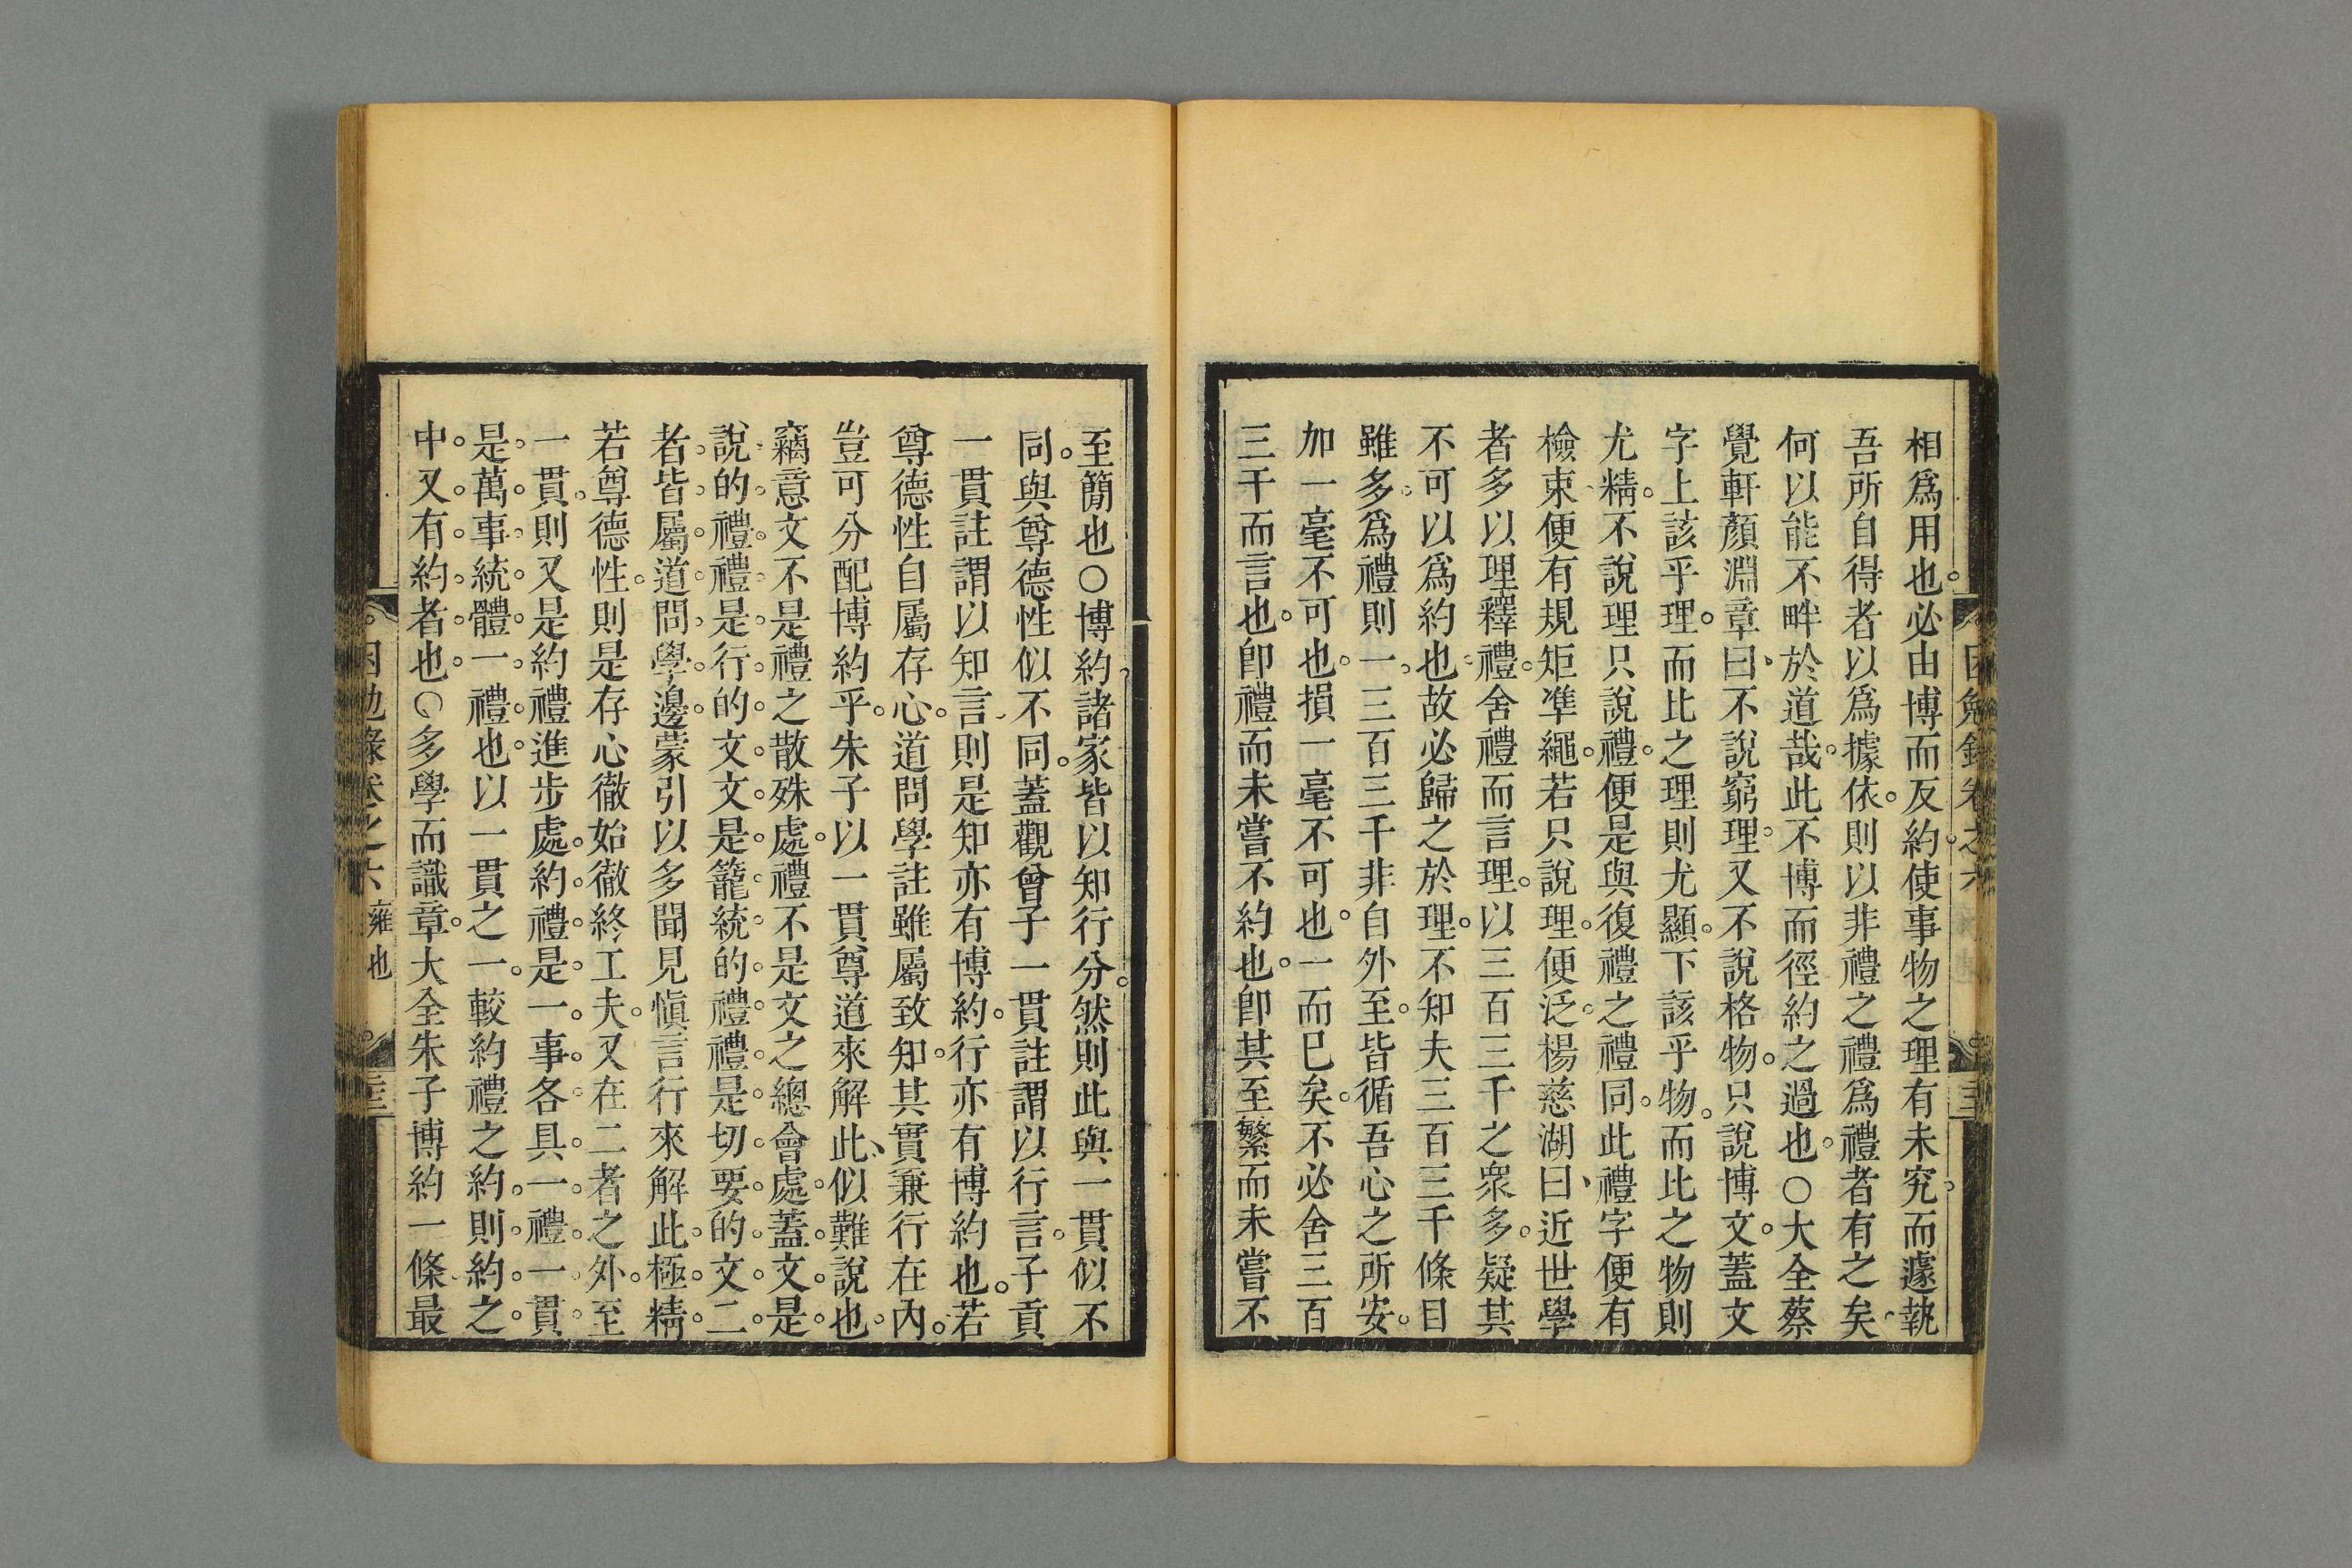 相爲用也。必由博而反約。使事物之理有未究。而遽執
吾所自得者以爲據依。則以非禮之禮爲禮者有之矣、
何以能不畔於道哉。此不博而徑約之過也。○大全蔡
覺軒顏淵章曰、不說窮理。又不說格物。只說博文。蓋文
字上該乎理。而比之理則尤顯。下該乎物。而比之物則
尤精。不說理只說禮。便是與復禮之禮同。此禮字便有
檢束、便有規矩準繩。若只說理。便泛。楊慈湖曰、近世學
者多以理釋禮。舍禮而言理。以三百三千之衆多。疑其
不可以爲約也。故必歸之於理。不知夫三百三千條目
雖多。爲禮則一。三百三千。非自外至。皆循吾心之所安。
加一毫不可也。損一毫不可也。一而已矣。不必舍三百
三千而言也。卽禮而未嘗不約也。卽其至繁而未嘗不
困勉錄卷之六
至簡也○博約、諸家皆以知行分。然則此與一貫似不
同。與尊德性似不同。蓋觀曾子一貫註謂以行言。子貢
一貫註謂以知言、則是知亦有博約。行亦有博約也。若
尊德性自屬存心。道問學註雖屬致知。其實兼行在內。
豈可分配博約乎。朱子以一貫尊道來解此、似難說也。
竊意文不是禮之散殊處。禮不是文之總會處。蓋文。是。
說。的。禮。禮。是。行。的。文。文。是。籠。統。的。禮。禮。是。切。要。的。文。二。
者。皆。屬。道。問。學。邊。蒙引以多聞見愼言行來解此。極。精。
若尊德性。則是存心徹始徹終工夫。又在二者之外。至
一貫。則又是約禮進步處。約。禮。是。一。事。各。具。一。禮。一。貫。
是。萬。事。統。體。一。禮。也。以一貫之一。較約禮之約。則。約。之。
中。又。有。約。者。也。○多學而識章。大全朱子博約一條、最
困勉錄卷之六 雍也